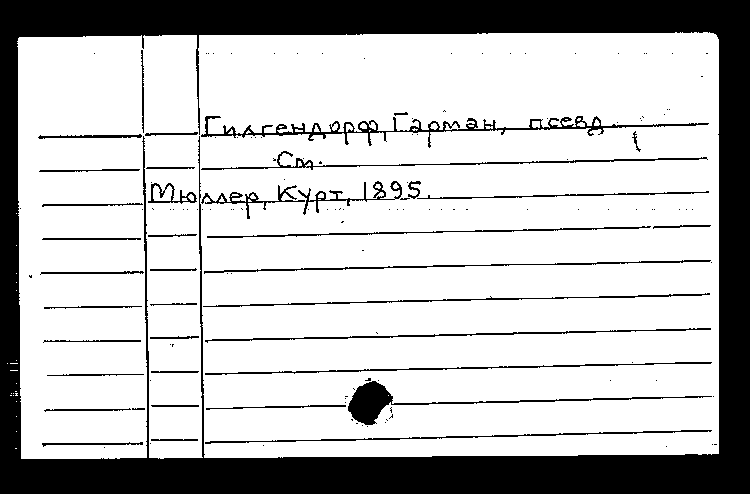 Гилгендорф, Гарман, псевд.
См.
Мюллер, Курт, 1895.